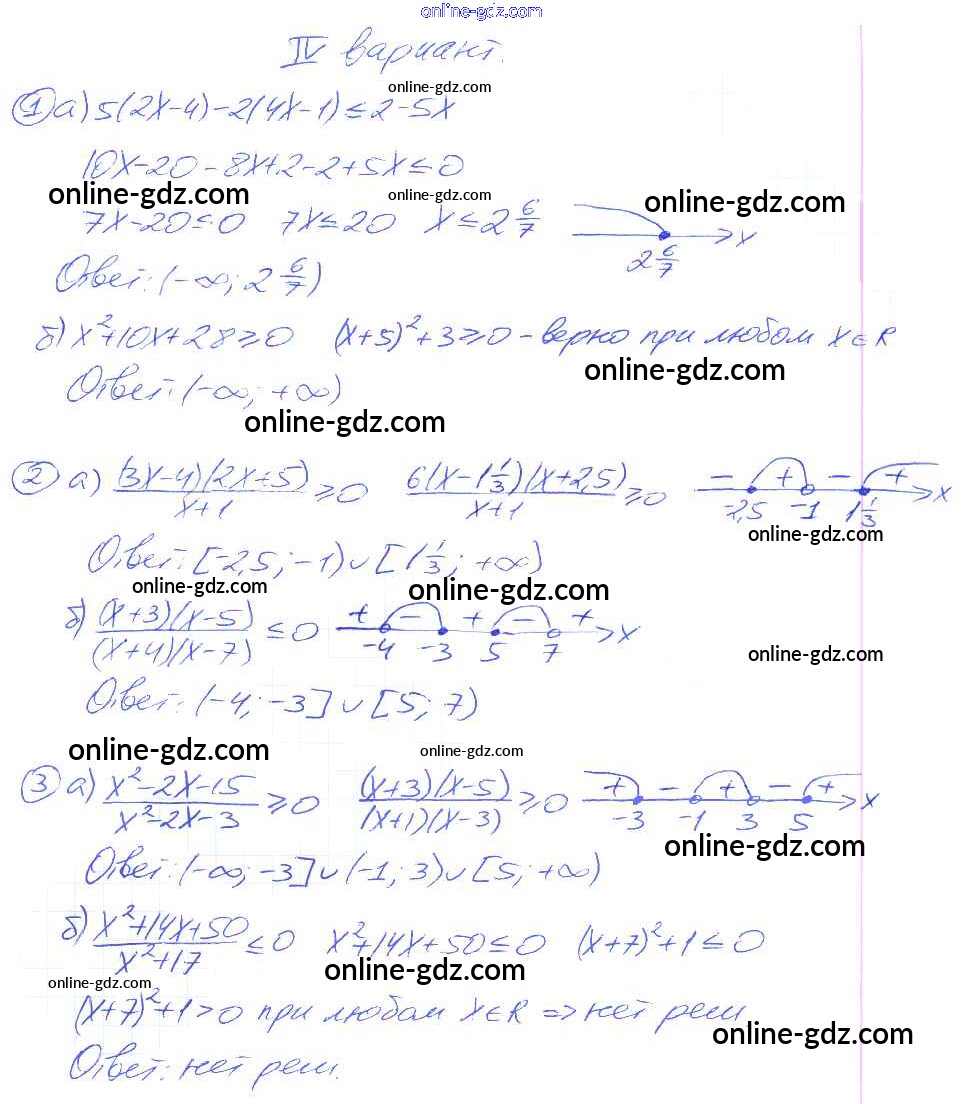 online-gdz.com
IV вариант.
online-gdz.com
① а) 5(2x-4)-2(4x-1)≤2-5x
10x-20-8x+2-2+5x≤0
online-gdz.com online-gdz.com online-gdz.com
7x-20≤0 7x≤20 x≤2 6/7 x
2 6/7
Ответ: (-∞; 2 6/7)
б) x²+10x+28≥0 (x+5)²+3≥0 - верно при любом x∈R
online-gdz.com
Ответ: (-∞; +∞)
online-gdz.com
② а) (3x-4)(2x+5)/x+1 ≥0 6(x-1 1/3)(x+2,5)/x+1 ≥0 - + - + x
-2,5 -1 1 1/3
online-gdz.com
Ответ: [-2,5; -1)∪[1 1/3; +∞)
online-gdz.com online-gdz.com
б) (x+3)(x-5)/(x+4)(x-7) ≤0 + - + - + x
-4 -3 5 7
online-gdz.com
Ответ: (-4; -3]∪[5; 7)
online-gdz.com online-gdz.com
③ а) x²-2x-15/x²-2x-3 ≥0 (x+3)(x-5)/(x+1)(x-3) ≥0 + - + - + x
-3 -1 3 5
online-gdz.com
Ответ: (-∞; -3]∪(-1; 3)∪[5; +∞)
б) x²+14x+50/x²+17 ≤0 x²+14x+50≤0 (x+7)²+1≤0
online-gdz.com online-gdz.com
(x+7)²+1>0 при любом x∈R => нет реш
online-gdz.com
Ответ: нет реш.